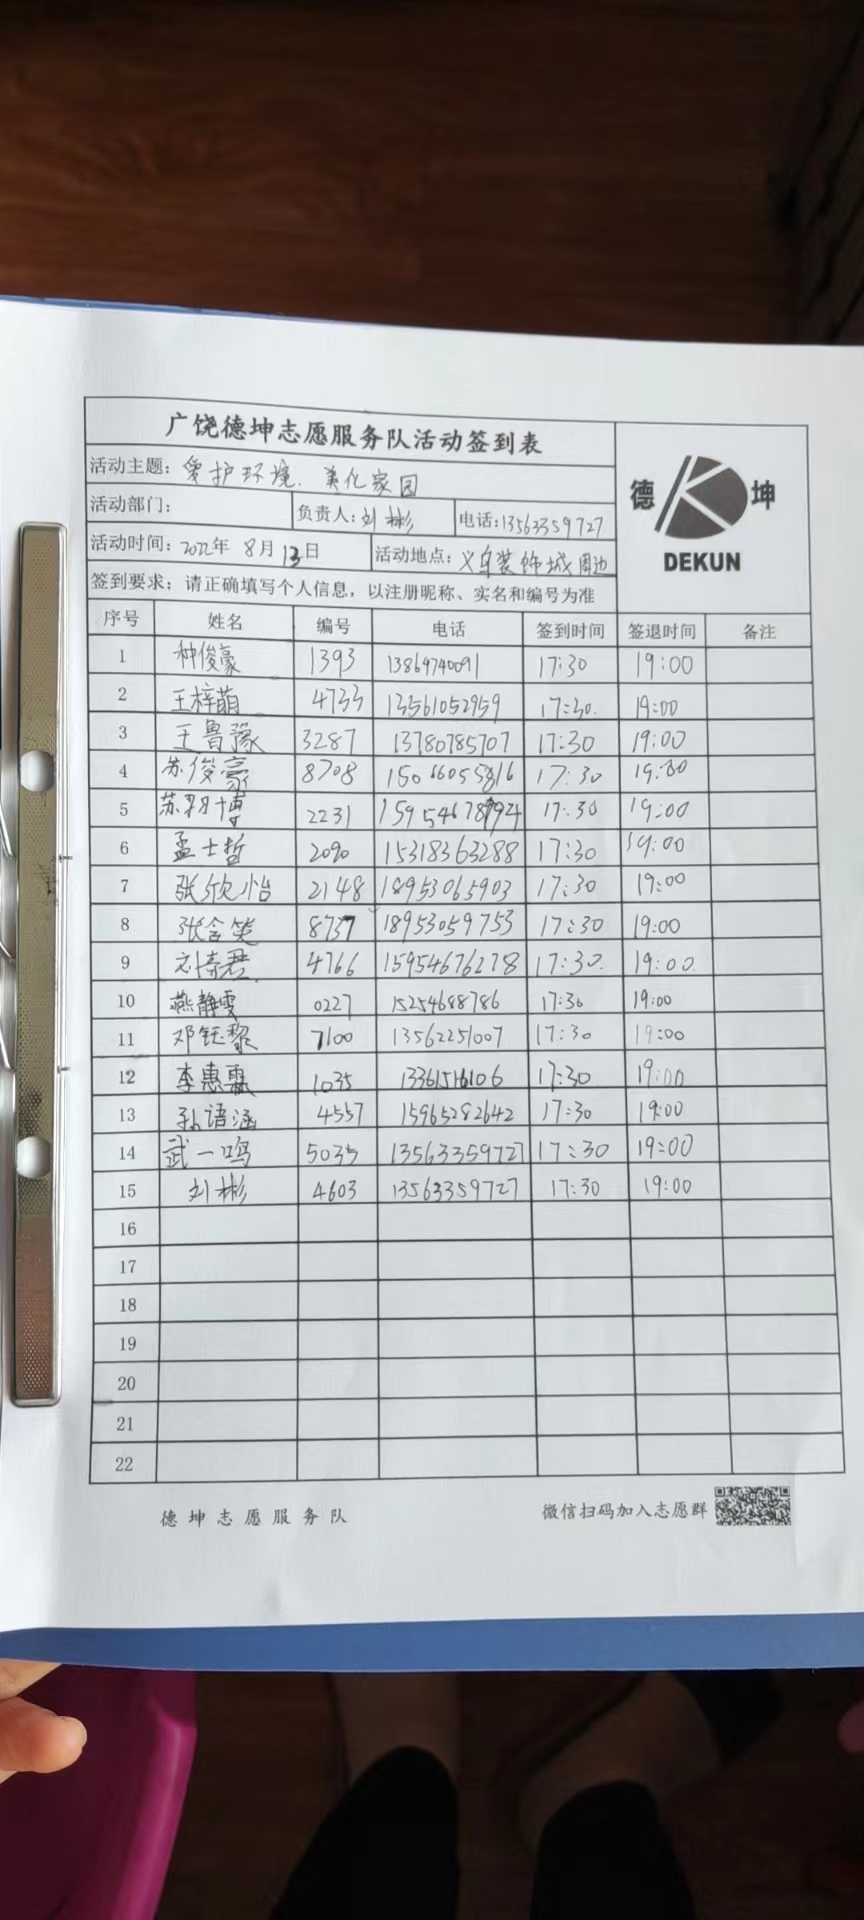 广饶德坤志愿服务队活动签到表
活动主题：爱护环境．美化家园
德 坤
DEKUN
活动部门： 负责人：刘彬 电话：13563359727
活动时间：2022年 8月13日 活动地点：义乌装饰城周边
签到要求：请正确填写个人信息，以注册昵称、实名和编号为准
序号 姓名 编号 电话 签到时间 签退时间 备注
1 种俊豪 1393 13869740091 17:30 19:00
2 王梓萌 4733 13561052959 17:30. 19:00
3 王鲁豫 3287 13780785707 17:30 19:00
4 苏俊豪 8708 15066055816 17:30 19:00
5 苏羽博 2231 17:30 19:00
6 孟士哲 2090 15318363288 17:30 19:00
7 张欣怡 2148 18953065903 17:30 19:00
8 张含笑 8737 18953059753 17:30 19:00
9 刘琦君 4766 15954676278 17:30. 19:00.
10 燕静雯 0227 15254688786 17:30 19:00
11 邓钰黎 7100 13562251007 17:30 19:00
12 李惠霖 1035 13361516106 17:30 19:00
13 孙语涵 4557 15965282642 17:30 19:00
14 武一鸣 5035 13563359727 17:30 19:00
15 刘彬 4603 13563359727 17:30 19:00
16
17
18
19
20
21
22
德坤志愿服务队 微信扫码加入志愿群